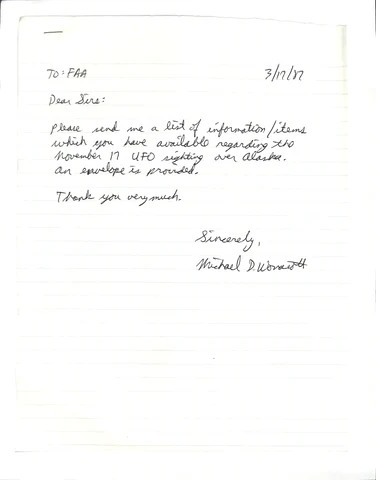 TO: FAA 3/17/87
Dear Sirs:
Please send me a list of information/items
which you have available regarding the
November 17 UFO sighting over Alaska.
An envelope is provided.
Thank you very much.
Sincerely,
Michael D.